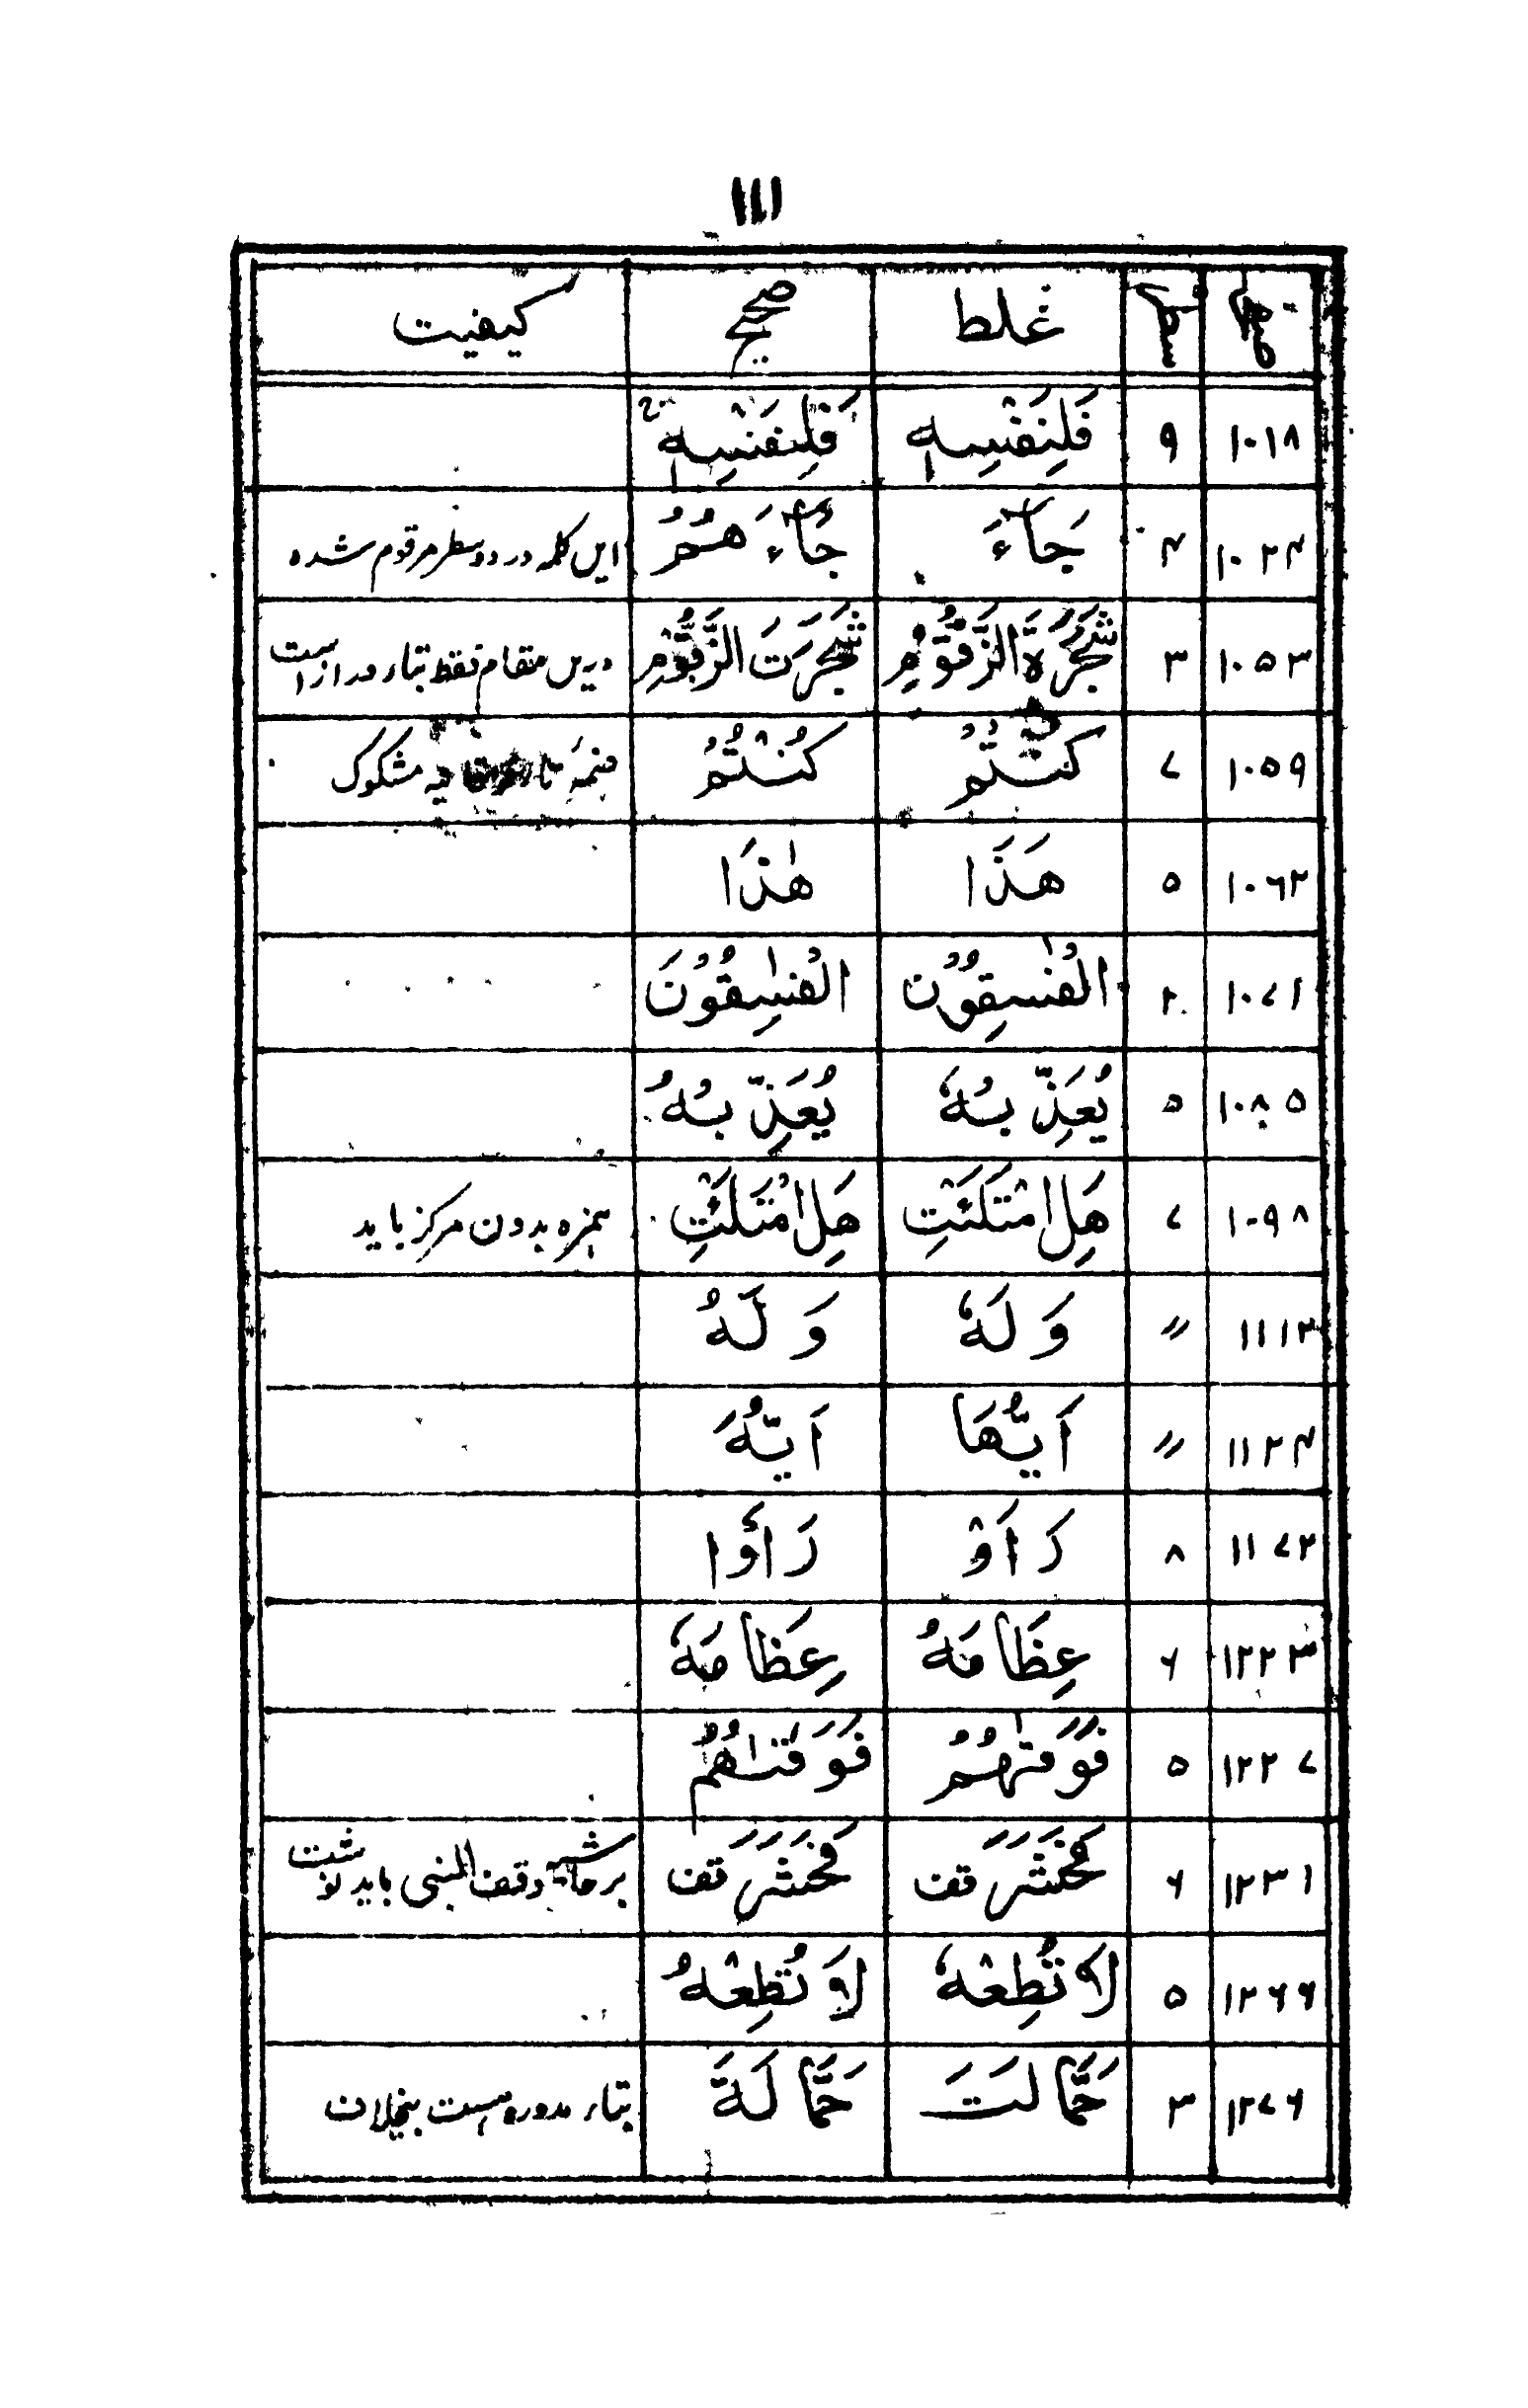 ۱۱۱
صفحہ سطر غلط صحیح کیفیت
۱۰۱۸ ۹ فَلِنَفْسِهٖ فَلِنَفْسِهٖ ج
۱۰۲۴ ۴ جَآءَ جَآءَهُمُ ایں کلمہ در دو سطر مرقوم شدہ
۱۰۵۳ ۳ شَجَرَةَ الزَّقُّوْمِ شَجَرَتَ الزَّقُّوْمِ دریں مقام فقط بتاء دراز است
۱۰۵۹ ۷ كُنْتُمْ كُنْتُمْ ضمہ تاء مشکوک
۱۰۶۲ ۵ هَذَا هٰذَا
۱۰۷۱ ۲ الْفٰسِقُوْن الْفٰسِقُوْنَ
۱۰۸۵ ۵ يُعَذِّبُهٗ يُعَذِّبُهُ
۱۰۹۸ ۷ هَلِ امْتَلَئْتِ هَلِ امْتَلَـْٔتِ ہمزہ بدون مرکز باید
۱۱۱۲ // وَلَهٗ وَلَهُ
۱۱۲۴ // اَيُّهَا اَيُّهَ
۱۱۷۲ ۸ رَاَوْ رَاَوُا
۱۲۲۳ ۶ عِظَامَهُ عِظَامَهٗ
۱۲۲۷ ۵ فَوَقٰهُمُ فَوَقٰىهُمُ
۱۲۳۱ ۶ فَحَشَرَ قف فَحَشَرَ قف بر حاشیہ وقف النبی باید نوشت
۱۲۶۶ ۵ لَا تُطِعْهٗ لَا تُطِعْهُ
۱۲۷۶ ۳ حَمَّالَتَ حَمَّالَةَ بتاء مدورہ است بخلاف